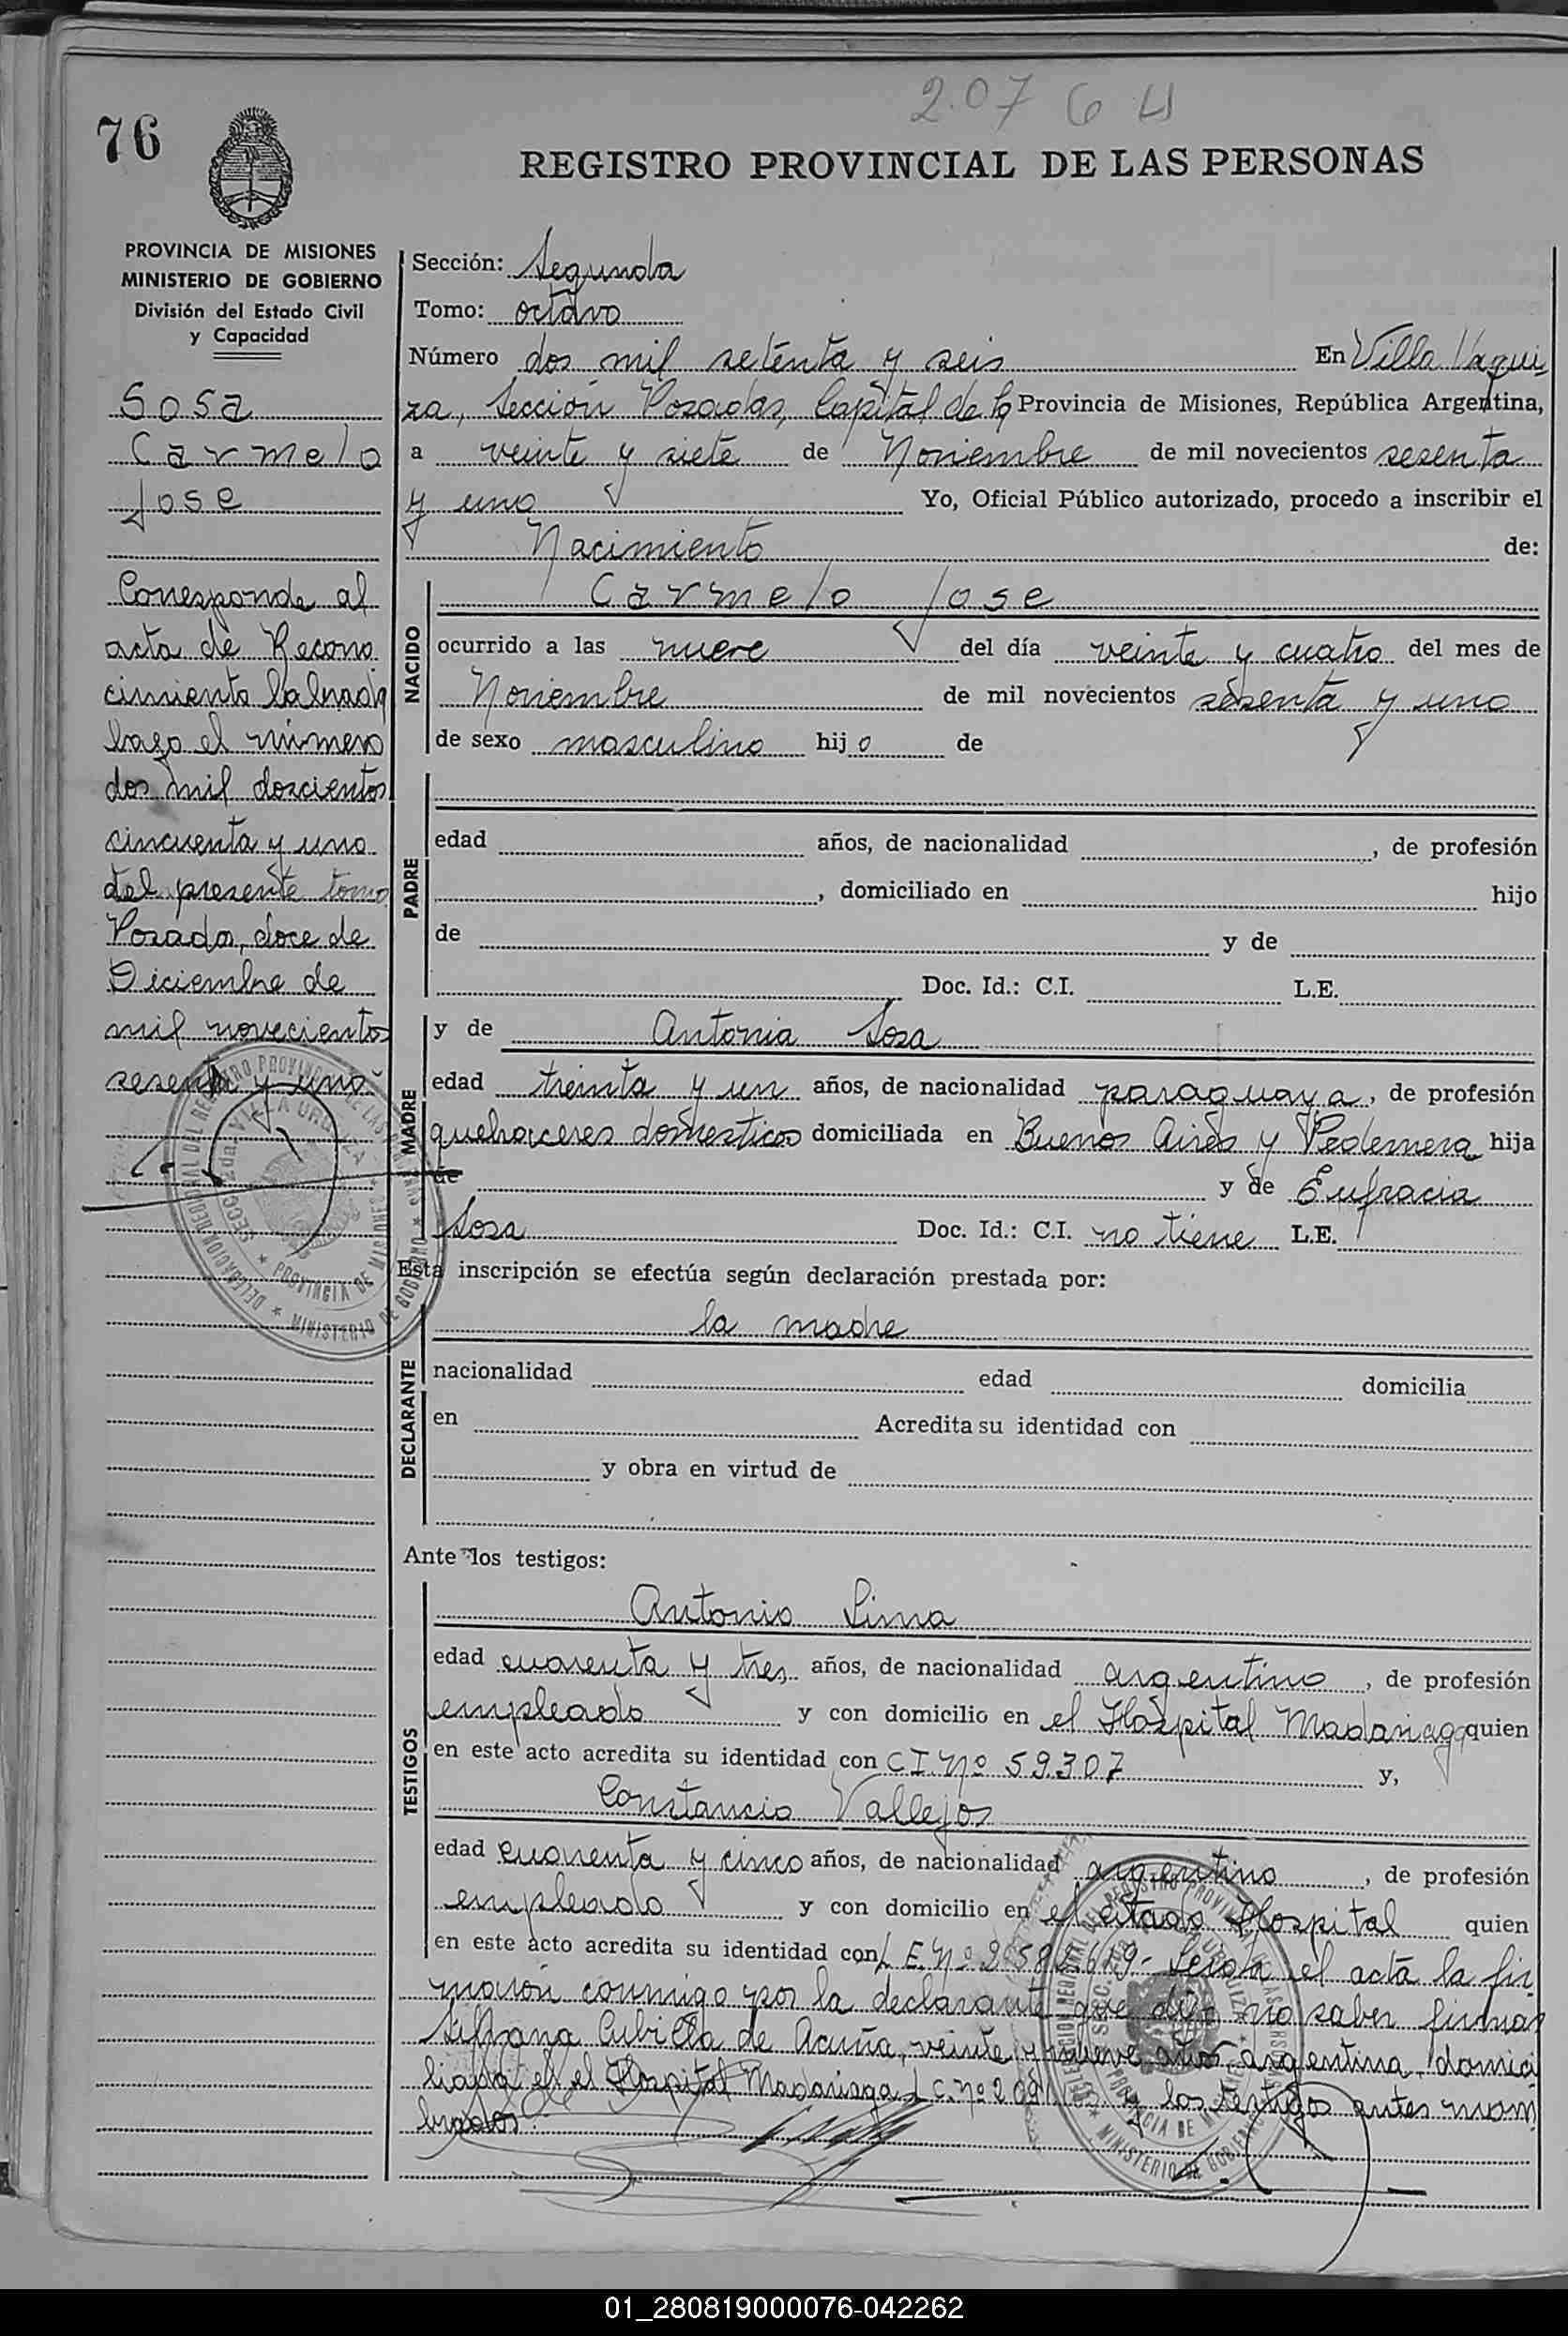 2.07 6 4
76
REGISTRO PROVINCIAL DE LAS PERSONAS
PROVINCIA DE MISIONES
MINISTERIO DE GOBIERNO
División del Estado Civil
y Capacidad
Sosa
Carmelo
Jose
Corresponde al
acta de Recono
cimiento labrada
bajo el número
dos mil doscientos
cincuenta y uno
del presente tomo
Posadas, doce de
Diciembre de
mil novecientos
sesenta y uno
Sección: Segunda
Tomo: octavo
Número dos mil setenta y seis En Villa Urqui
za, Sección Posadas, Capital de la Provincia de Misiones, República Argentina,
a veinte y siete de Noviembre de mil novecientos sesenta
y uno Yo, Oficial Público autorizado, procedo a inscribir el
Nacimiento de:
NACIDO
Carmelo Jose
ocurrido a las nueve del día veinte y cuatro del mes de
Noviembre de mil novecientos sesenta y uno
de sexo masculino hijo de
PADRE
edad años, de nacionalidad , de profesión
, domiciliado en hijo
de y de
Doc. Id.: C.I. L.E.
MADRE
y de Antonia Sosa
edad treinta y un años, de nacionalidad paraguaya, de profesión
quehaceres domesticos domiciliada en Buenos Aires y Pedernera hija
de y de Eufracia
Sosa Doc. Id.: C.I. no tiene L.E.
Esta inscripción se efectúa según declaración prestada por:
DECLARANTE
la madre
nacionalidad edad domicilia
en Acredita su identidad con
y obra en virtud de
Ante los testigos:
TESTIGOS
Antonio Lima
edad cuarenta y tres años, de nacionalidad argentino, de profesión
empleado y con domicilio en el Hospital Madariaga quien
en este acto acredita su identidad con C I. Nº 59.307 y,
Constancio Vallejos
edad cuarenta y cinco años, de nacionalidad argentino, de profesión
empleado y con domicilio en el citado Hospital quien
en este acto acredita su identidad con L E. Nº Leida el acta la fir
maron conmigo por la declarante que dijo no saber firmar
Cubilla de Acuña, veinte y nueve años, argentina, domici
liada el el Hospital Madariaga L C. nº y los testigos antes nom
brados.
DELEGACION REGIONAL DEL REGISTRO PROVINCIAL DE LAS PERSONAS
SECC. 2da. VILLA URQUIZA
PROVINCIA DE MISIONES
MINISTERIO DE GOBIERNO
01_280819000076-042262